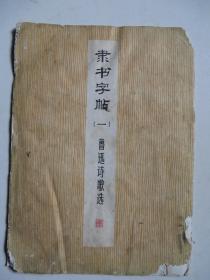 隶书字帖
(一)
鲁迅诗歌选